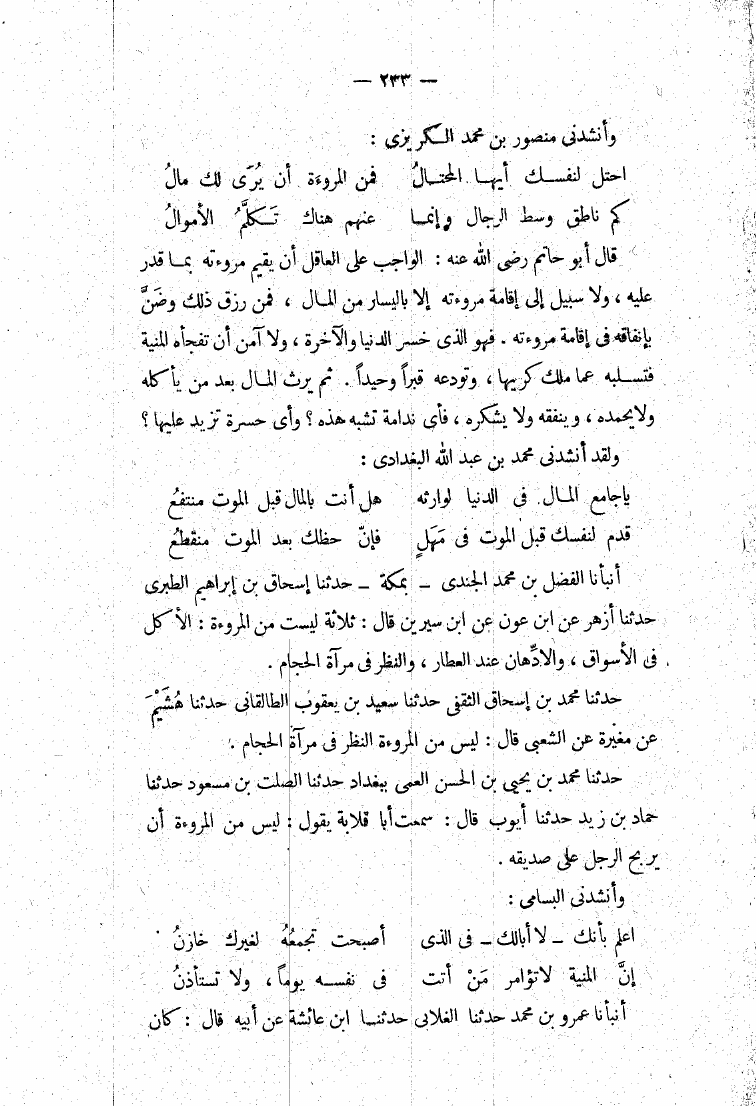 — ٢٣٣ —
وأنشدنى منصور بن محمد الكريزى :
احتل لنفسك أيها المحتالُ فمن المروءة أن يُرَى لك مالُ
كم ناطق وسط الرجال وإنما عنهم هناك تَكلَّمُ الأموالُ
قال أبو حاتم رضى الله عنه : الواجب على العاقل أن يقيم مروءته بما قدر
عليه ، ولا سبيل إلى إقامة مروءته إلا باليسار من المال ، فمن رزق ذلك وضَنَّ
بإنفاقه فى إقامة مروءته . فهو الذى خسر الدنيا والآخرة ، ولا آمن أن تفجأه المنية
فتسلبه عما ملك كريها ، وتودعه قبراً وحيداً . ثم يرث المال بعد من يأكله
ولا يحمده ، وينفقه ولا يشكره ، فأى ندامة تشبه هذه ؟ وأى حسرة تزيد عليها ؟
ولقد أنشدنى محمد بن عبد الله البغدادى :
ياجامع المال فى الدنيا لوارثه هل أنت بالمال قبل الموت منتفعُ
قدم لنفسك قبل الموت فى مَهَلٍ فإنّ حظك بعد الموت منقطعُ
أنبأنا الفضل بن محمد الجندى ــ بمكة ــ حدثنا إسحاق بن إبراهيم الطبرى
حدثنا أزهر عن ابن عون عن ابن سيرين قال : ثلاثة ليست من المروءة : الأكل
فى الأسواق ، والادِّهان عند العطار ، والنظر فى مرآة الحجام .
حدثنا محمد بن إسحاق الثقفى حدثنا سعيد بن يعقوب الطالقانى حدثنا هُشَيْمَ
عن مغيرة عن الشعبى قال : ليس من المروءة النظر فى مرآة الحجام .
حدثنا محمد بن يحيى بن الحسن العمى ببغداد حدثنا الصلت بن مسعود حدثنا
حماد بن زيد حدثنا أيوب قال : سمعت أبا قلابة يقول : ليس من المروءة أن
يربح الرجل على صديقه .
وأنشدنى البسامى :
اعلم بأنك ــ لا أبالك ــ فى الذى أصبحت تجمعُهُ لغيرك خازنُ
إنَّ المنية لاتؤامر مَنْ أتت فى نفسه يوماً ، ولا تستأذنُ
أنبأنا عمرو بن محمد حدثنا الغلابى حدثنا ابن عائشة عن أبيه قال : كان